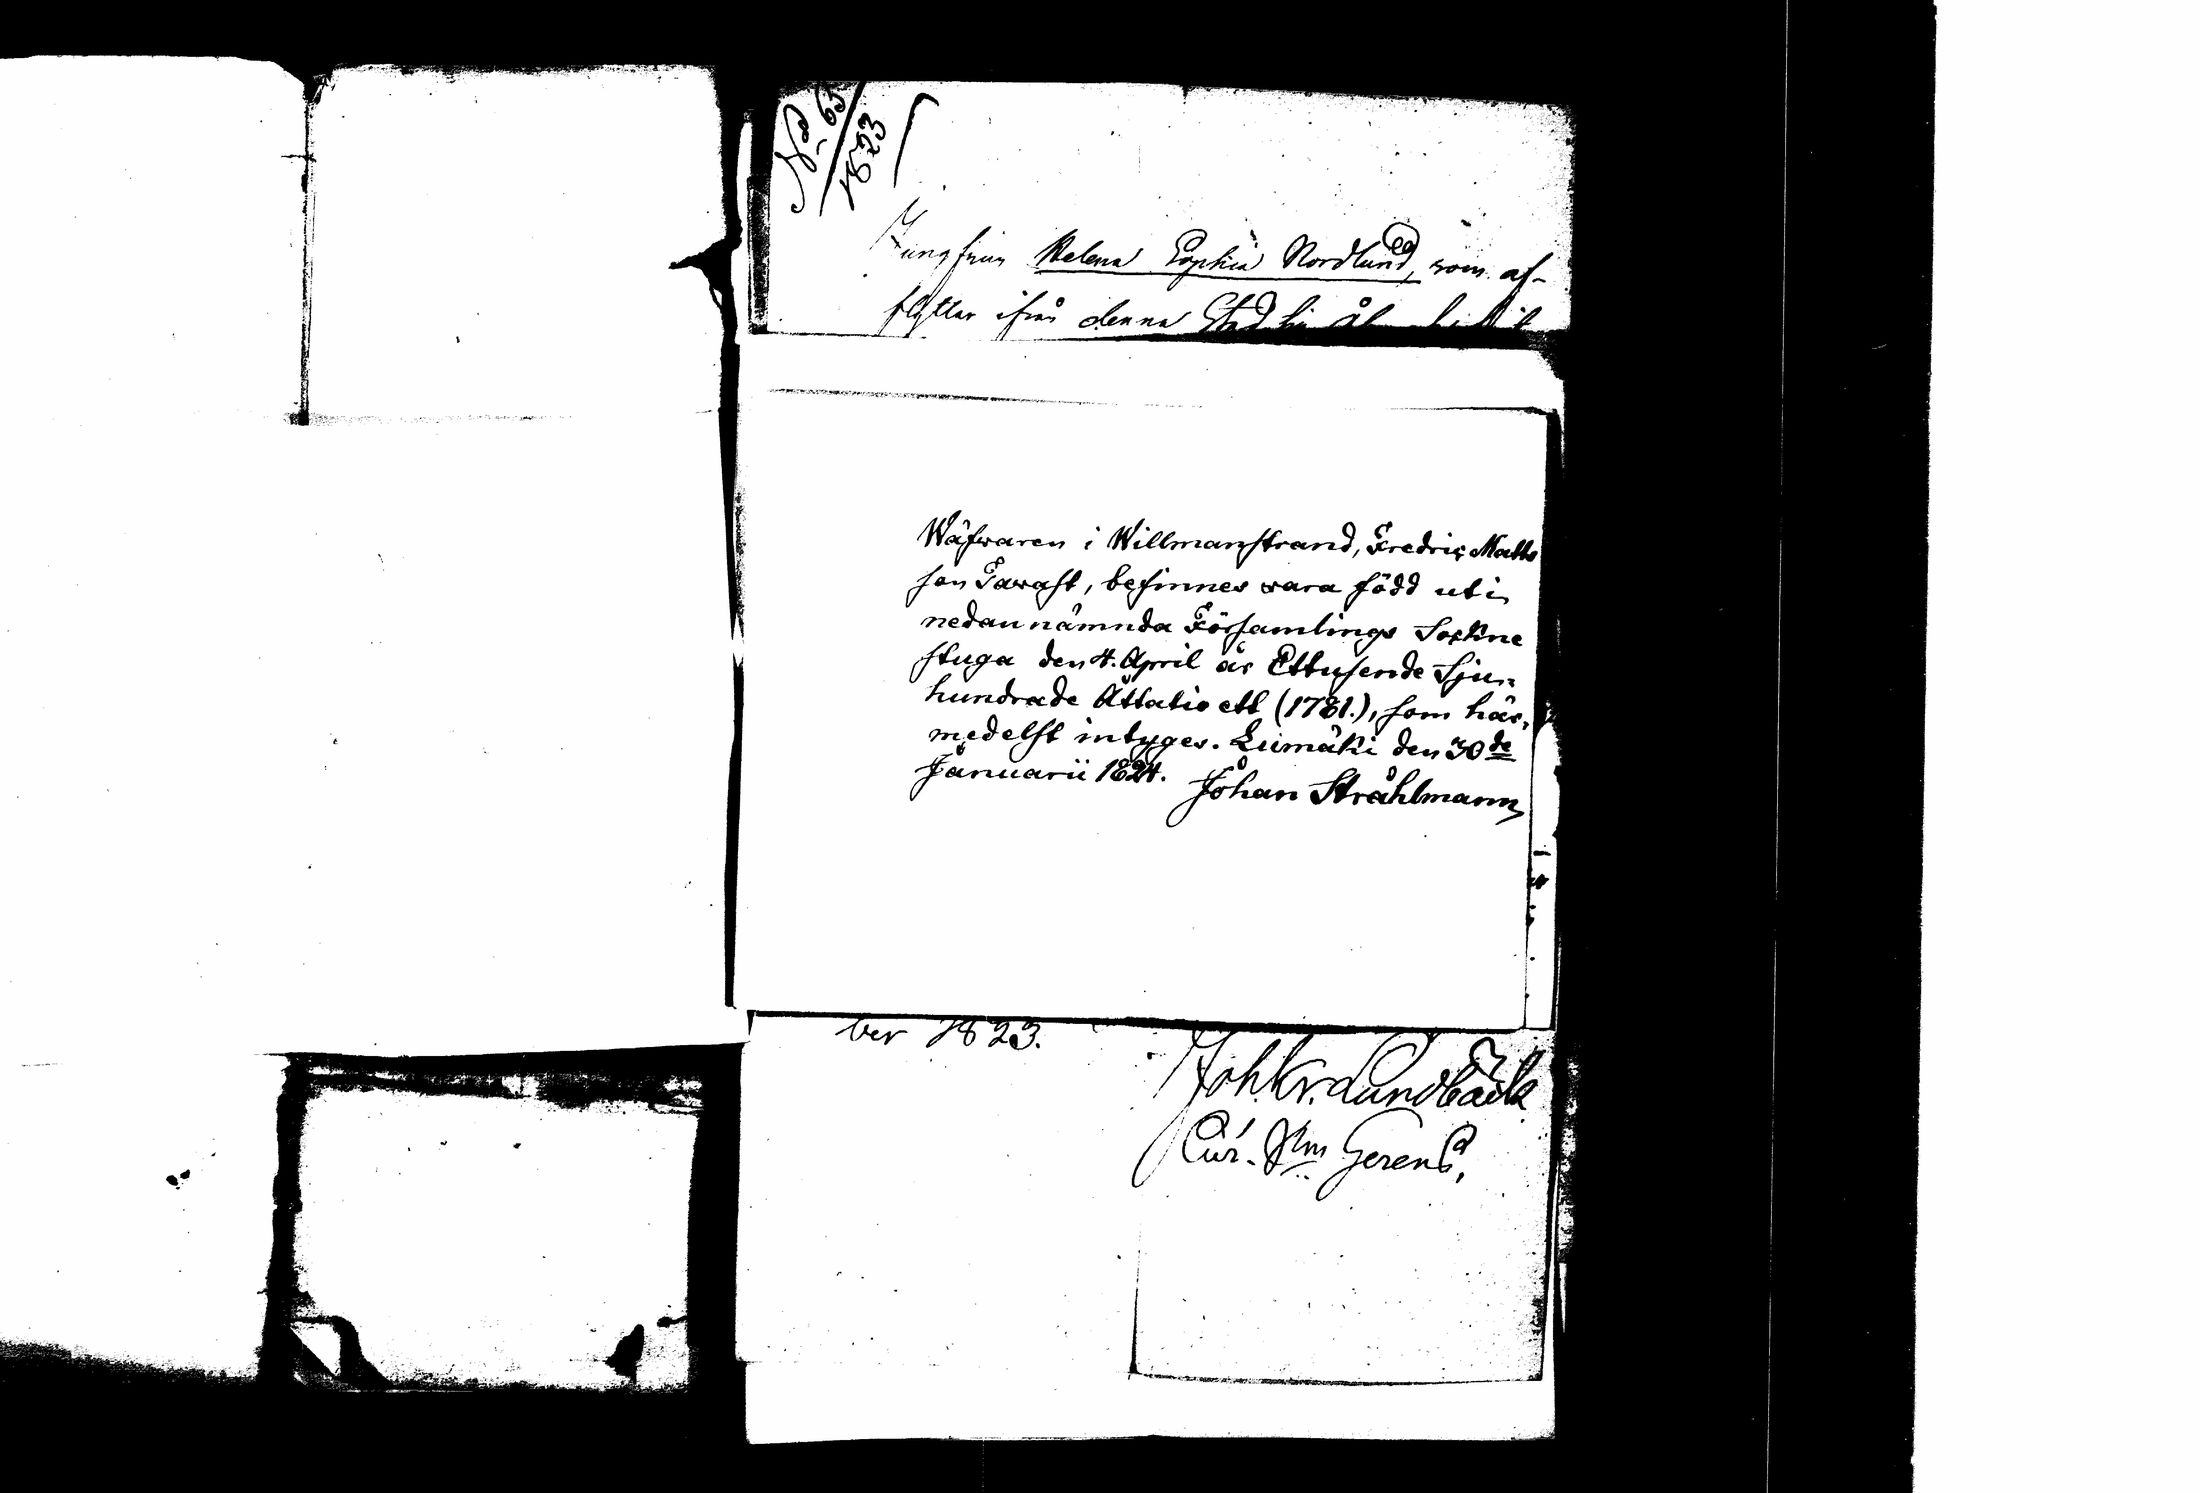 No 63
1823
Jungfrun Helena Sophia Nordlund, som af-
flyttar ifrån denna Stad
Wäfwaren i Willmanstrand, Fredric Matts
son Tawast, befinnes wara född uti
nedannämnda Församlings Sockne
stuga den 4. April år Ettusende Sju-
hundrade Åttatio ett (1781.), som här-
medelst intyges. Luimäki den 30de
Januarii 1824.
Johan Stråhlmann
ber 1823.
Joh. Kr. Lundbäck
Cur. Gerens.